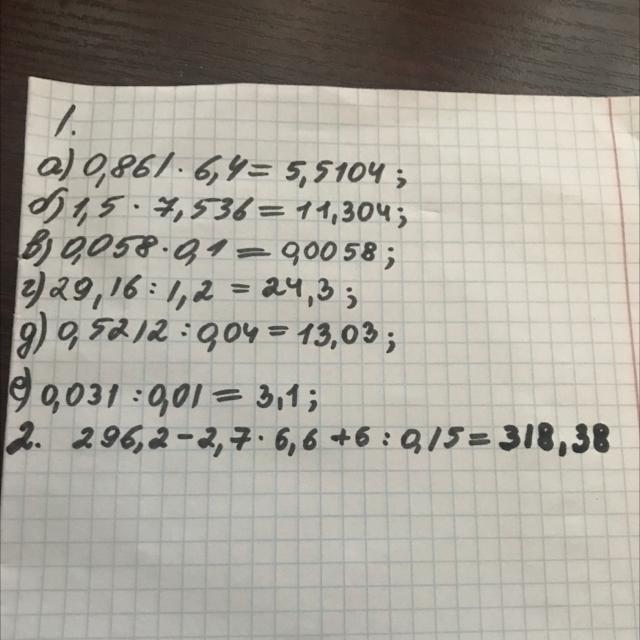 1.
а) 0,861 · 6,4 = 5,5104;
б) 1,5 · 7,536 = 11,304;
в) 0,058 · 0,1 = 0,0058;
г) 29,16 : 1,2 = 24,3;
д) 0,5212 : 0,04 = 13,03;
е) 0,031 : 0,01 = 3,1;
2. 296,2 - 2,7 · 6,6 + 6 : 0,15 = 318,38